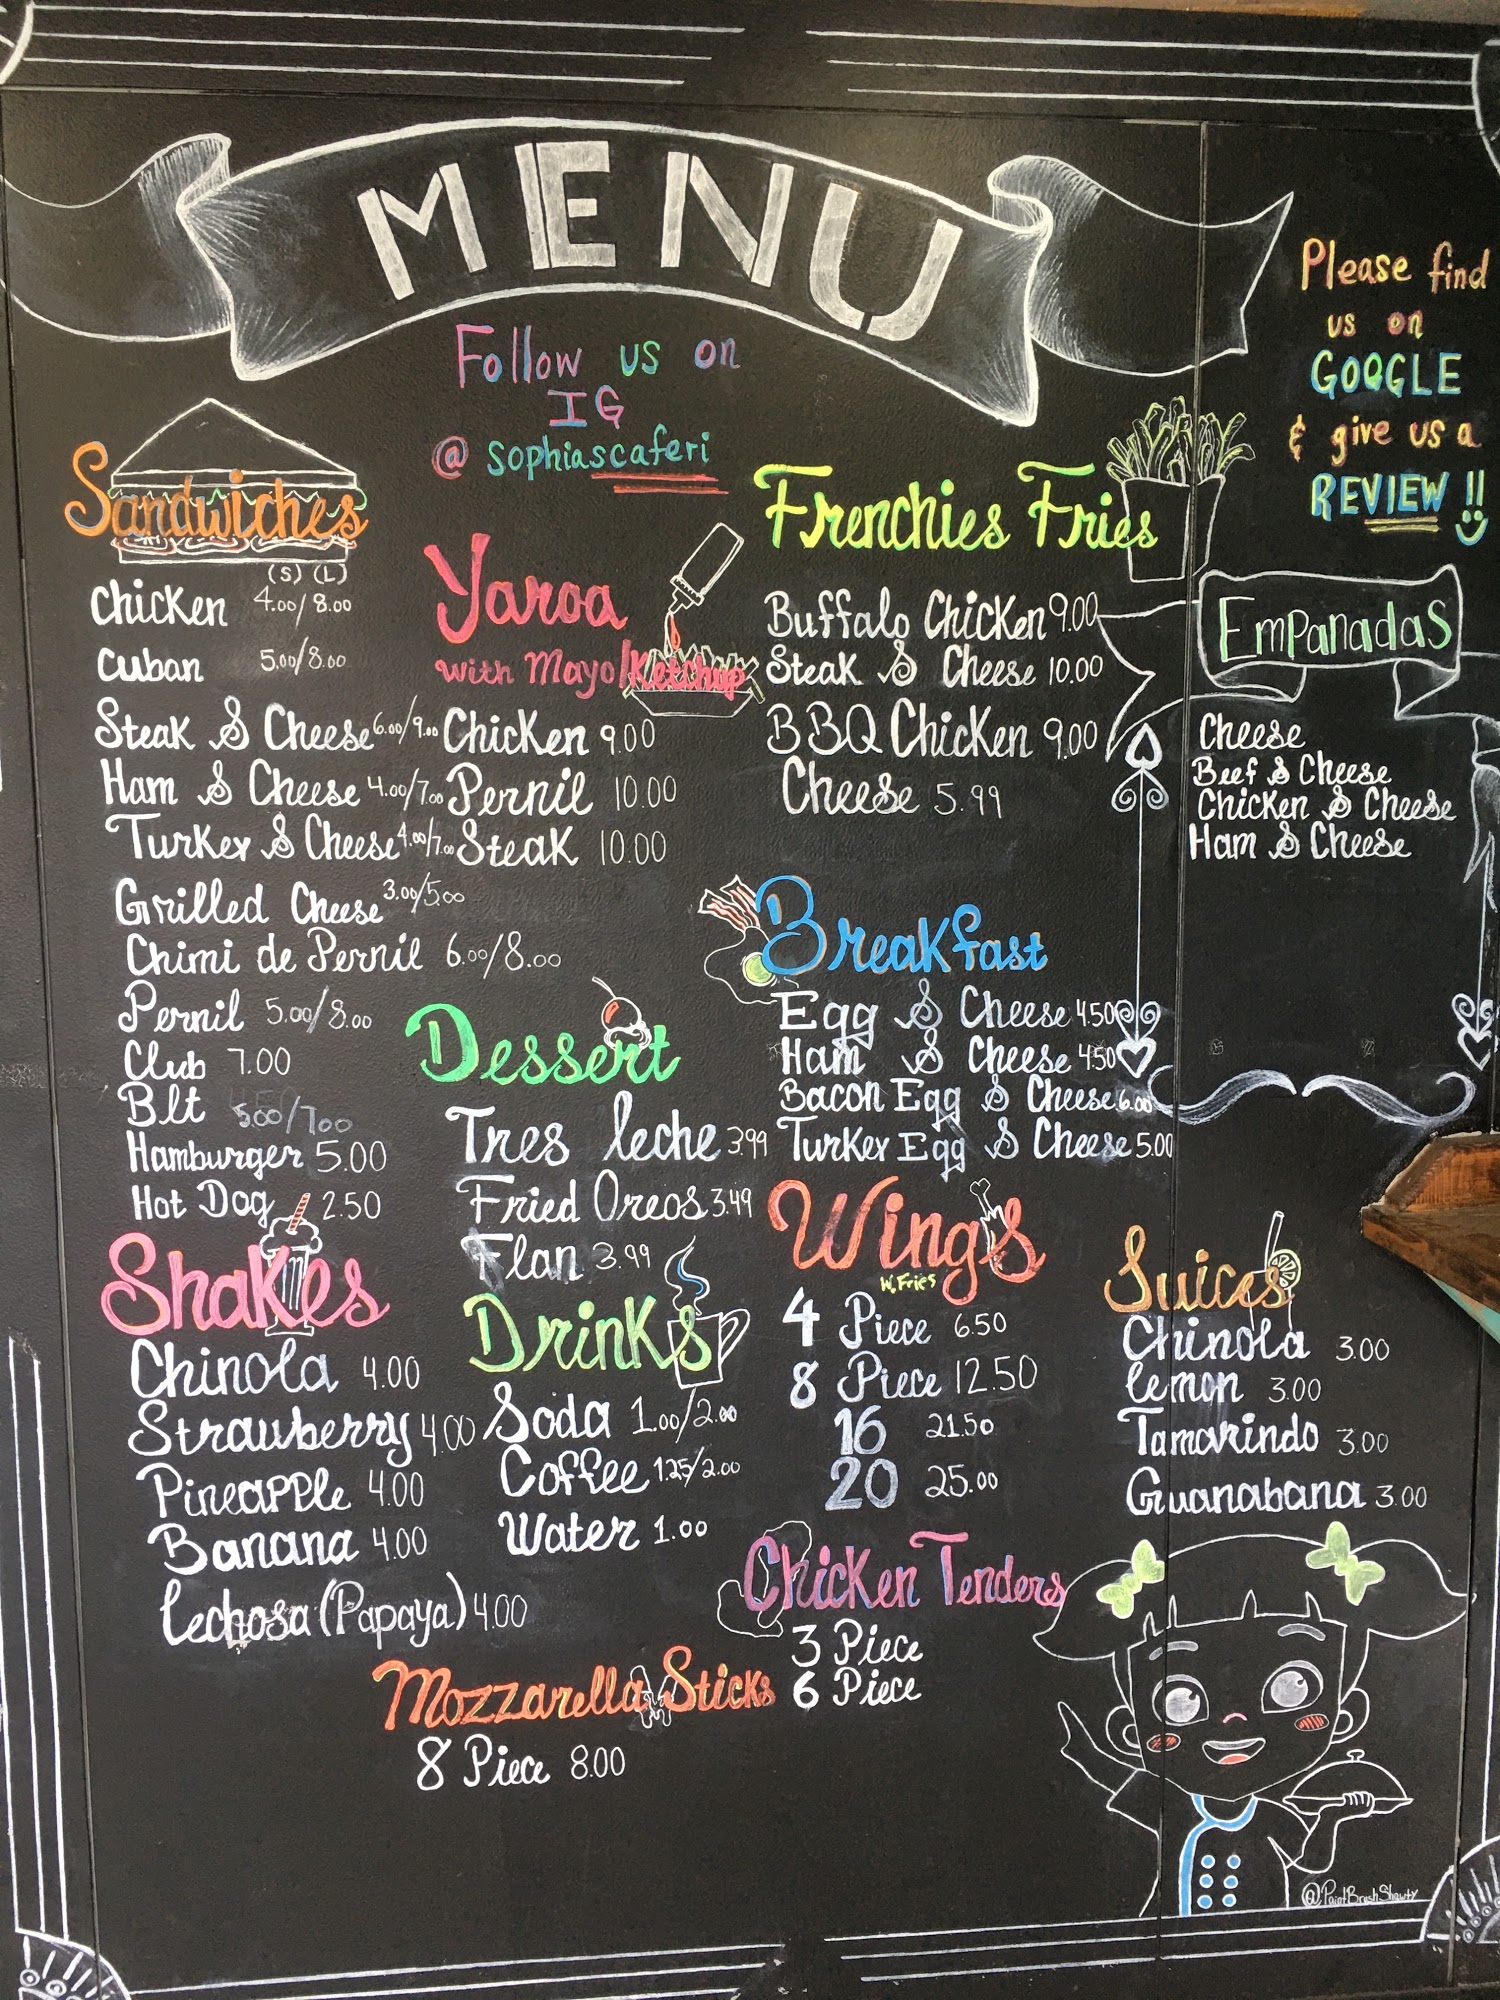 MENU
Follow us on
IG
@ sophiascaferi
Please find
us on
GOOGLE
& give us a
REVIEW !!
Sandwiches
(S) (L)
Chicken 4.00/8.00
Cuban 5.00/8.00
Steak & Cheese 6.00/9.00
Ham & Cheese 4.00/7.00
Turkey & Cheese 4.00/7.00
Grilled Cheese 3.00/5.00
Chimi de Pernil 6.00/8.00
Pernil 5.00/8.00
Club 7.00
Blt 5.00/7.00
Hamburger 5.00
Hot Dog 2.50
Shakes
Chinola 4.00
Strawberry 4.00
Pineapple 4.00
Banana 4.00
Lechosa (Papaya) 4.00
Yaroa
with Mayo/Ketchup
Chicken 9.00
Pernil 10.00
Steak 10.00
Dessert
Tres leche 3.99
Fried Oreos 3.49
Flan 3.99
Drinks
Soda 1.00/2.00
Coffee 1.25/2.00
Water 1.00
Mozzarella Sticks
8 Piece 8.00
Frenchies Fries
Buffalo Chicken 9.00
Steak & Cheese 10.00
BBQ Chicken 9.00
Cheese 5.99
Breakfast
Egg & Cheese 4.50
Ham & Cheese 4.50
Bacon Egg & Cheese 6.00
Turkey Egg & Cheese 5.00
Wings
W. Fries
4 Piece 6.50
8 Piece 12.50
16 21.50
20 25.00
Chicken Tenders
3 Piece
6 Piece
Empanadas
Cheese
Beef & Cheese
Chicken & Cheese
Ham & Cheese
Juices
Chinola 3.00
lemon 3.00
Tamarindo 3.00
Guanabana 3.00
@PaintBrushShawty